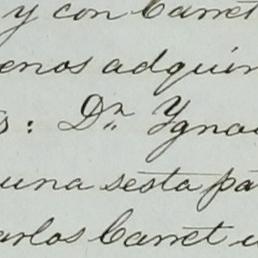 y con Carret
enos adquir
s: Dn Ygnac
una sesta pa
arlos Carret u